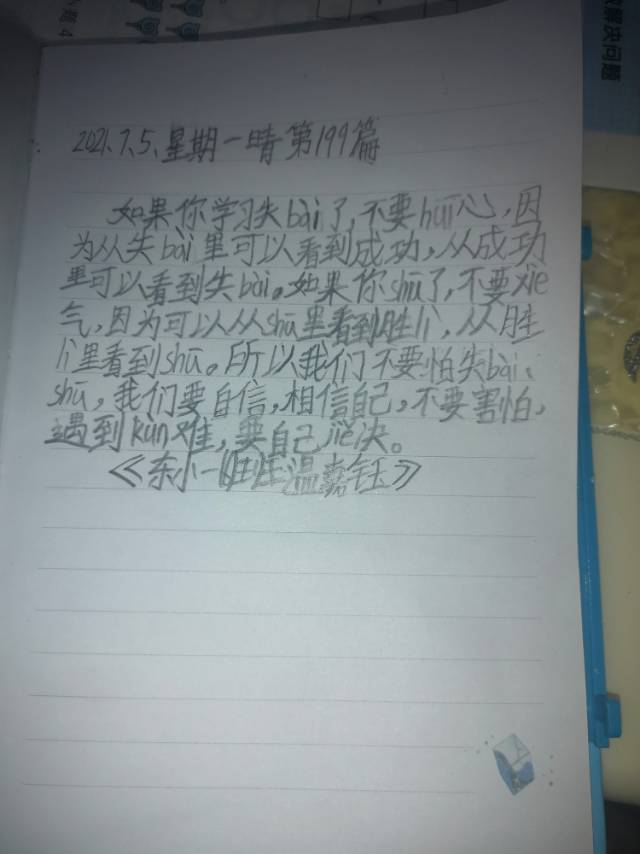 2021.7.5.星期一晴第199篇
如果你学习失bài了,不要huī心,因
为从失bài里可以看到成功,从成功
里可以看到失bài。如果你shū了,不要xiè
气,因为可以从shū里看到胜lì,从胜
lì里看到shū。所以我们不要怕失bài、
shū,我们要自信,相信自己,不要害怕,
遇到kùn难,要自己jiě决。
《东小一 温嘉钰》
解决问题